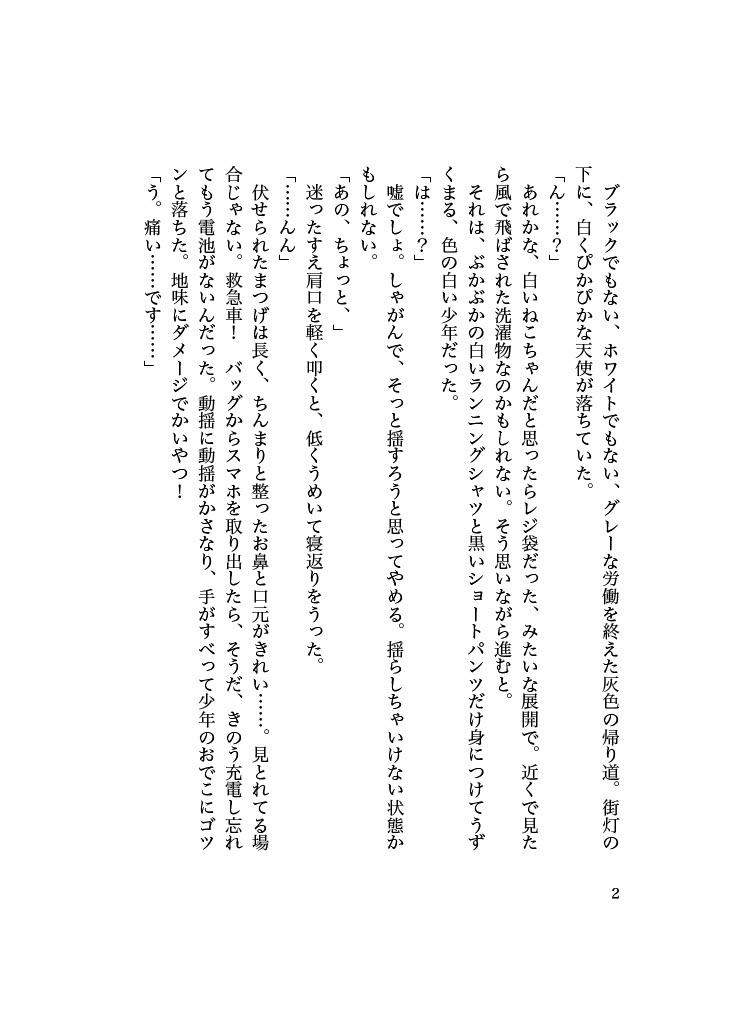 ブラックでもない、ホワイトでもない、グレーな労働を終えた灰色の帰り道。街灯の
下に、白くぴかぴかな天使が落ちていた。
「ん……？」
　あれかな、白いねこちゃんだと思ったらレジ袋だった、みたいな展開で。近くで見た
ら風で飛ばされた洗濯物なのかもしれない。そう思いながら進むと。
　それは、ぶかぶかの白いランニングシャツと黒いショートパンツだけ身につけてうず
くまる、色の白い少年だった。
「は……？」
　嘘でしょ。しゃがんで、そっと揺すろうと思ってやめる。揺らしちゃいけない状態か
もしれない。
「あの、ちょっと、」
　迷ったすえ肩口を軽く叩くと、低くうめいて寝返りをうった。
「……んん」
　伏せられたまつげは長く、ちんまりと整ったお鼻と口元がきれい……。見とれてる場
合じゃない。救急車！　バッグからスマホを取り出したら、そうだ、きのう充電し忘れ
てもう電池がないんだった。動揺に動揺がかさなり、手がすべって少年のおでこにゴツ
ンと落ちた。地味にダメージでかいやつ！
「う。痛い……です……」
2